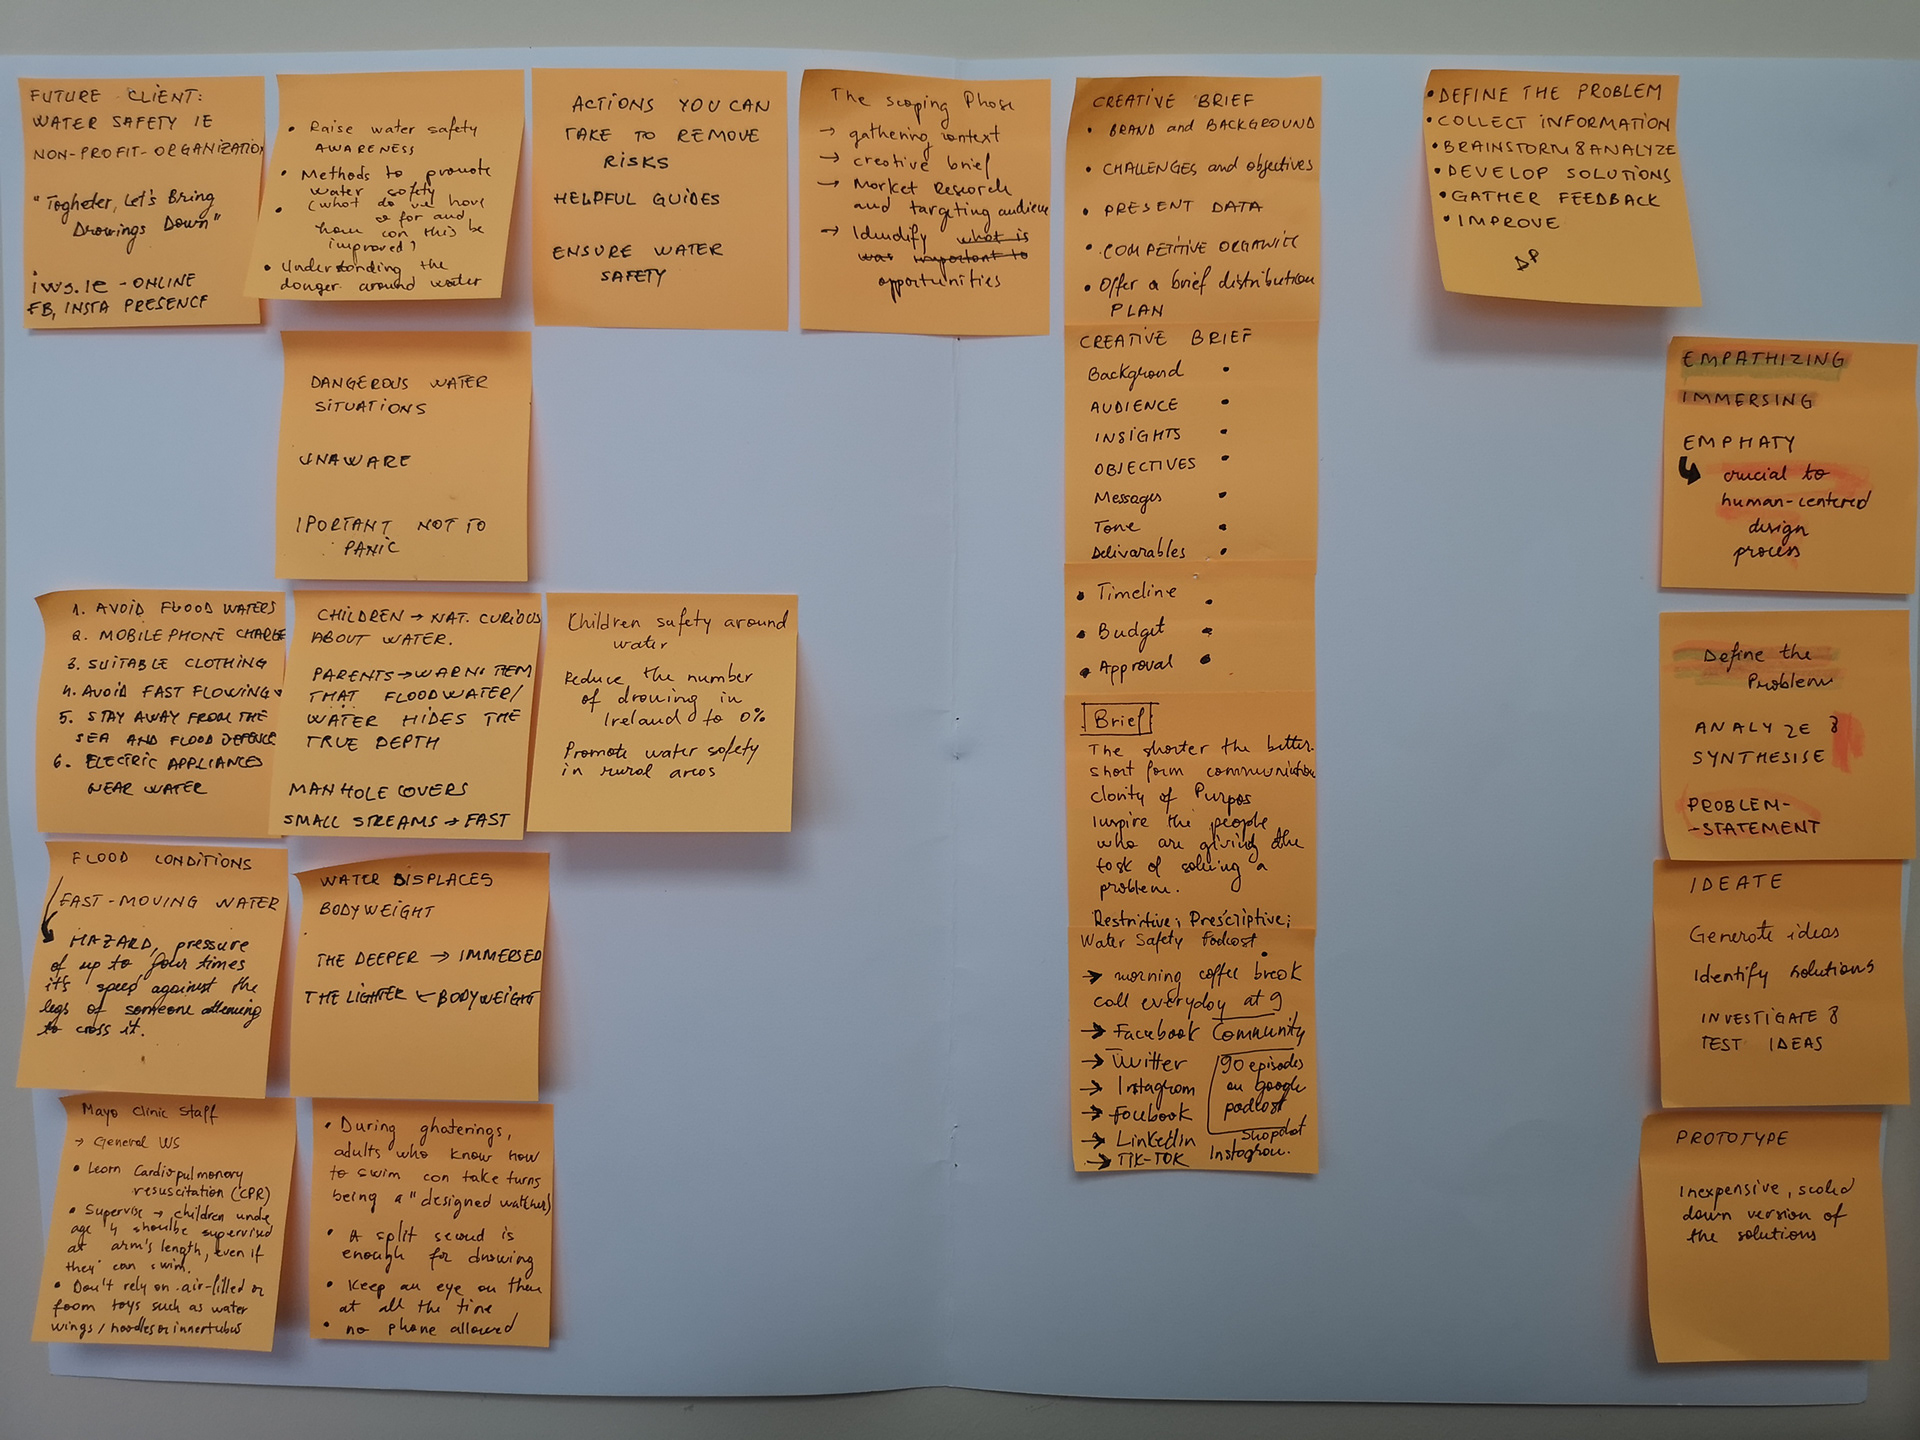 FUTURE CLIENT:
WATER SAFETY IE
NON-PROFIT-ORGANIZATION
"Togheter, Let's Bring
Drowings Down"
iws.ie - ONLINE
FB, INSTA PRESENCE
• Raise water safety
AWARENESS
• Methods to promote
water safety
• (what do we have
so far and
how can this be
improved)
• Understanding the
danger around water
ACTIONS YOU CAN
TAKE TO REMOVE
RISKS
HELPFUL GUIDES
ENSURE WATER
SAFETY
The scoping Phase
→ gathering context
→ creative brief
→ Market Research
and targeting audience
→ Idendify what is
was important to
opportunities
CREATIVE BRIEF
• BRAND and BACKGROUND
• CHALLENGES and objectives
• PRESENT DATA
• COMPETITIVE
• Offer a brief distribution
PLAN
• DEFINE THE PROBLEM
• COLLECT INFORMATION
• BRAINSTORM & ANALYZE
• DEVELOP SOLUTIONS
• GATHER FEEDBACK
• IMPROVE
DANGEROUS WATER
SITUATIONS
UNAWARE
IPORTANT NOT TO
PANIC
CREATIVE BRIEF
Background •
AUDIENCE •
INSIGHTS •
OBJECTIVES •
Messages •
Tone •
Delivarables •
• Timeline •
• Budget •
• Approval •
EMPATHIZING
IMMERSING
EMPHATY
crucial to
human-centered
design
process
1. AVOID FLOOD WATERS
2. MOBILE PHONE CHARGE
3. SUITABLE CLOTHING
4. AVOID FAST FLOWING
5. STAY AWAY FROM THE
SEA AND FLOOD DEFENCE
6. ELECTRIC APPLIANCES
NEAR WATER
CHILDREN → NAT. CURIOUS
ABOUT WATER.
PARENTS → WARN TEM
THAT FLOODWATER/
WATER HIDES THE
TRUE DEPTH
MANHOLE COVERS
SMALL STREAMS → FAST
Children safety around
water
Reduce the number
of drowing in
Ireland to 0%
Promote water safety
in rural areas
Brief
The shorter the better.
short form communication
clarity of Purpos
Inspire the people
who are giving the
task of solving a
problem.
Restrictive; Prescriptive;
Define the
Problem
ANALYZE &
SYNTHESISE
PROBLEM-
-STATEMENT
FLOOD CONDITIONS
FAST-MOVING WATER
HAZARD, pressure
of up to four times
it's speed against the
legs of someone
to cross it.
WATER DISPLACES
BODYWEIGHT
THE DEEPER → IMMERSED
THE LIGHTER ← BODYWEIGHT
Water Safety Podcast
→ morning coffee break
call everyday at 9
→ Facebook Community
→ Twitter
→ Instagram
→ Facebook
→ LinkedIn
→ TIK-TOK
90 episodes
on google
podcast
Instagram.
IDEATE
Generate ideas
Identify solutions
INVESTIGATE &
TEST IDEAS
Mayo Clinic Staff
→ General WS
• Learn Cardiopulmonary
resuscitation (CPR)
• Supervise → children under
age 4 shoulbe supervised
at arm's length, even if
they can swim.
• Don't rely on air-filled or
foam toys such as water
wings / noodles or innertubes
• During ghaterings,
adults who know how
to swim can take turns
being a "designed watcher)
• A split second is
enough for drowing
• Keep an eye on them
at all the time
• no phone allowed
PROTOTYPE
Inexpensive, scaled
down version of
the solutions